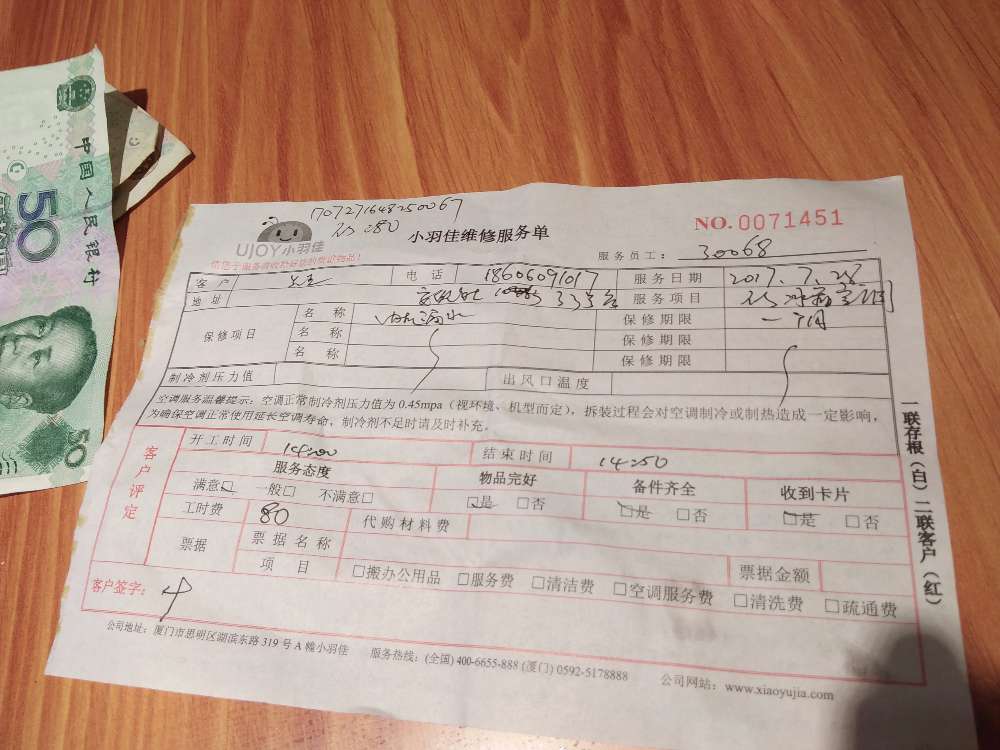 中国人民银行
50
50
1707271648250067
080
UJOY小羽佳
小羽佳维修服务单
NO.0071451
服务员工: 30068
客户 电话 18606091017 服务日期 2017.7.28
地址 335号 服务项目
保修项目 名称 内机漏水 保修期限 一个月
名称 保修期限
名称 保修期限
制冷剂压力值 出风口温度
空调服务温馨提示:空调正常制冷剂压力值为0.45mpa(视环境、机型而定),拆装过程会对空调制冷或制热造成一定影响,
为确保空调正常使用延长空调寿命,制冷剂不足时请及时补充。
客户评定
开工时间 14:00 结束时间 14:50
服务态度 物品完好 备件齐全 收到卡片
满意□ 一般□ 不满意□ □是 □否 □是 □否 □是 □否
工时费 80 代购材料费
票据 票据名称 票据金额
项目 □搬办公用品 □服务费 □清洁费 □空调服务费 □清洗费 □疏通费
客户签字:
一联存根(白)二联客户(红)
公司地址:厦门市思明区湖滨东路319号A幢小羽佳 服务热线:(全国)400-6655-888 (厦门)0592-5178888 公司网站:www.xiaoyujia.com